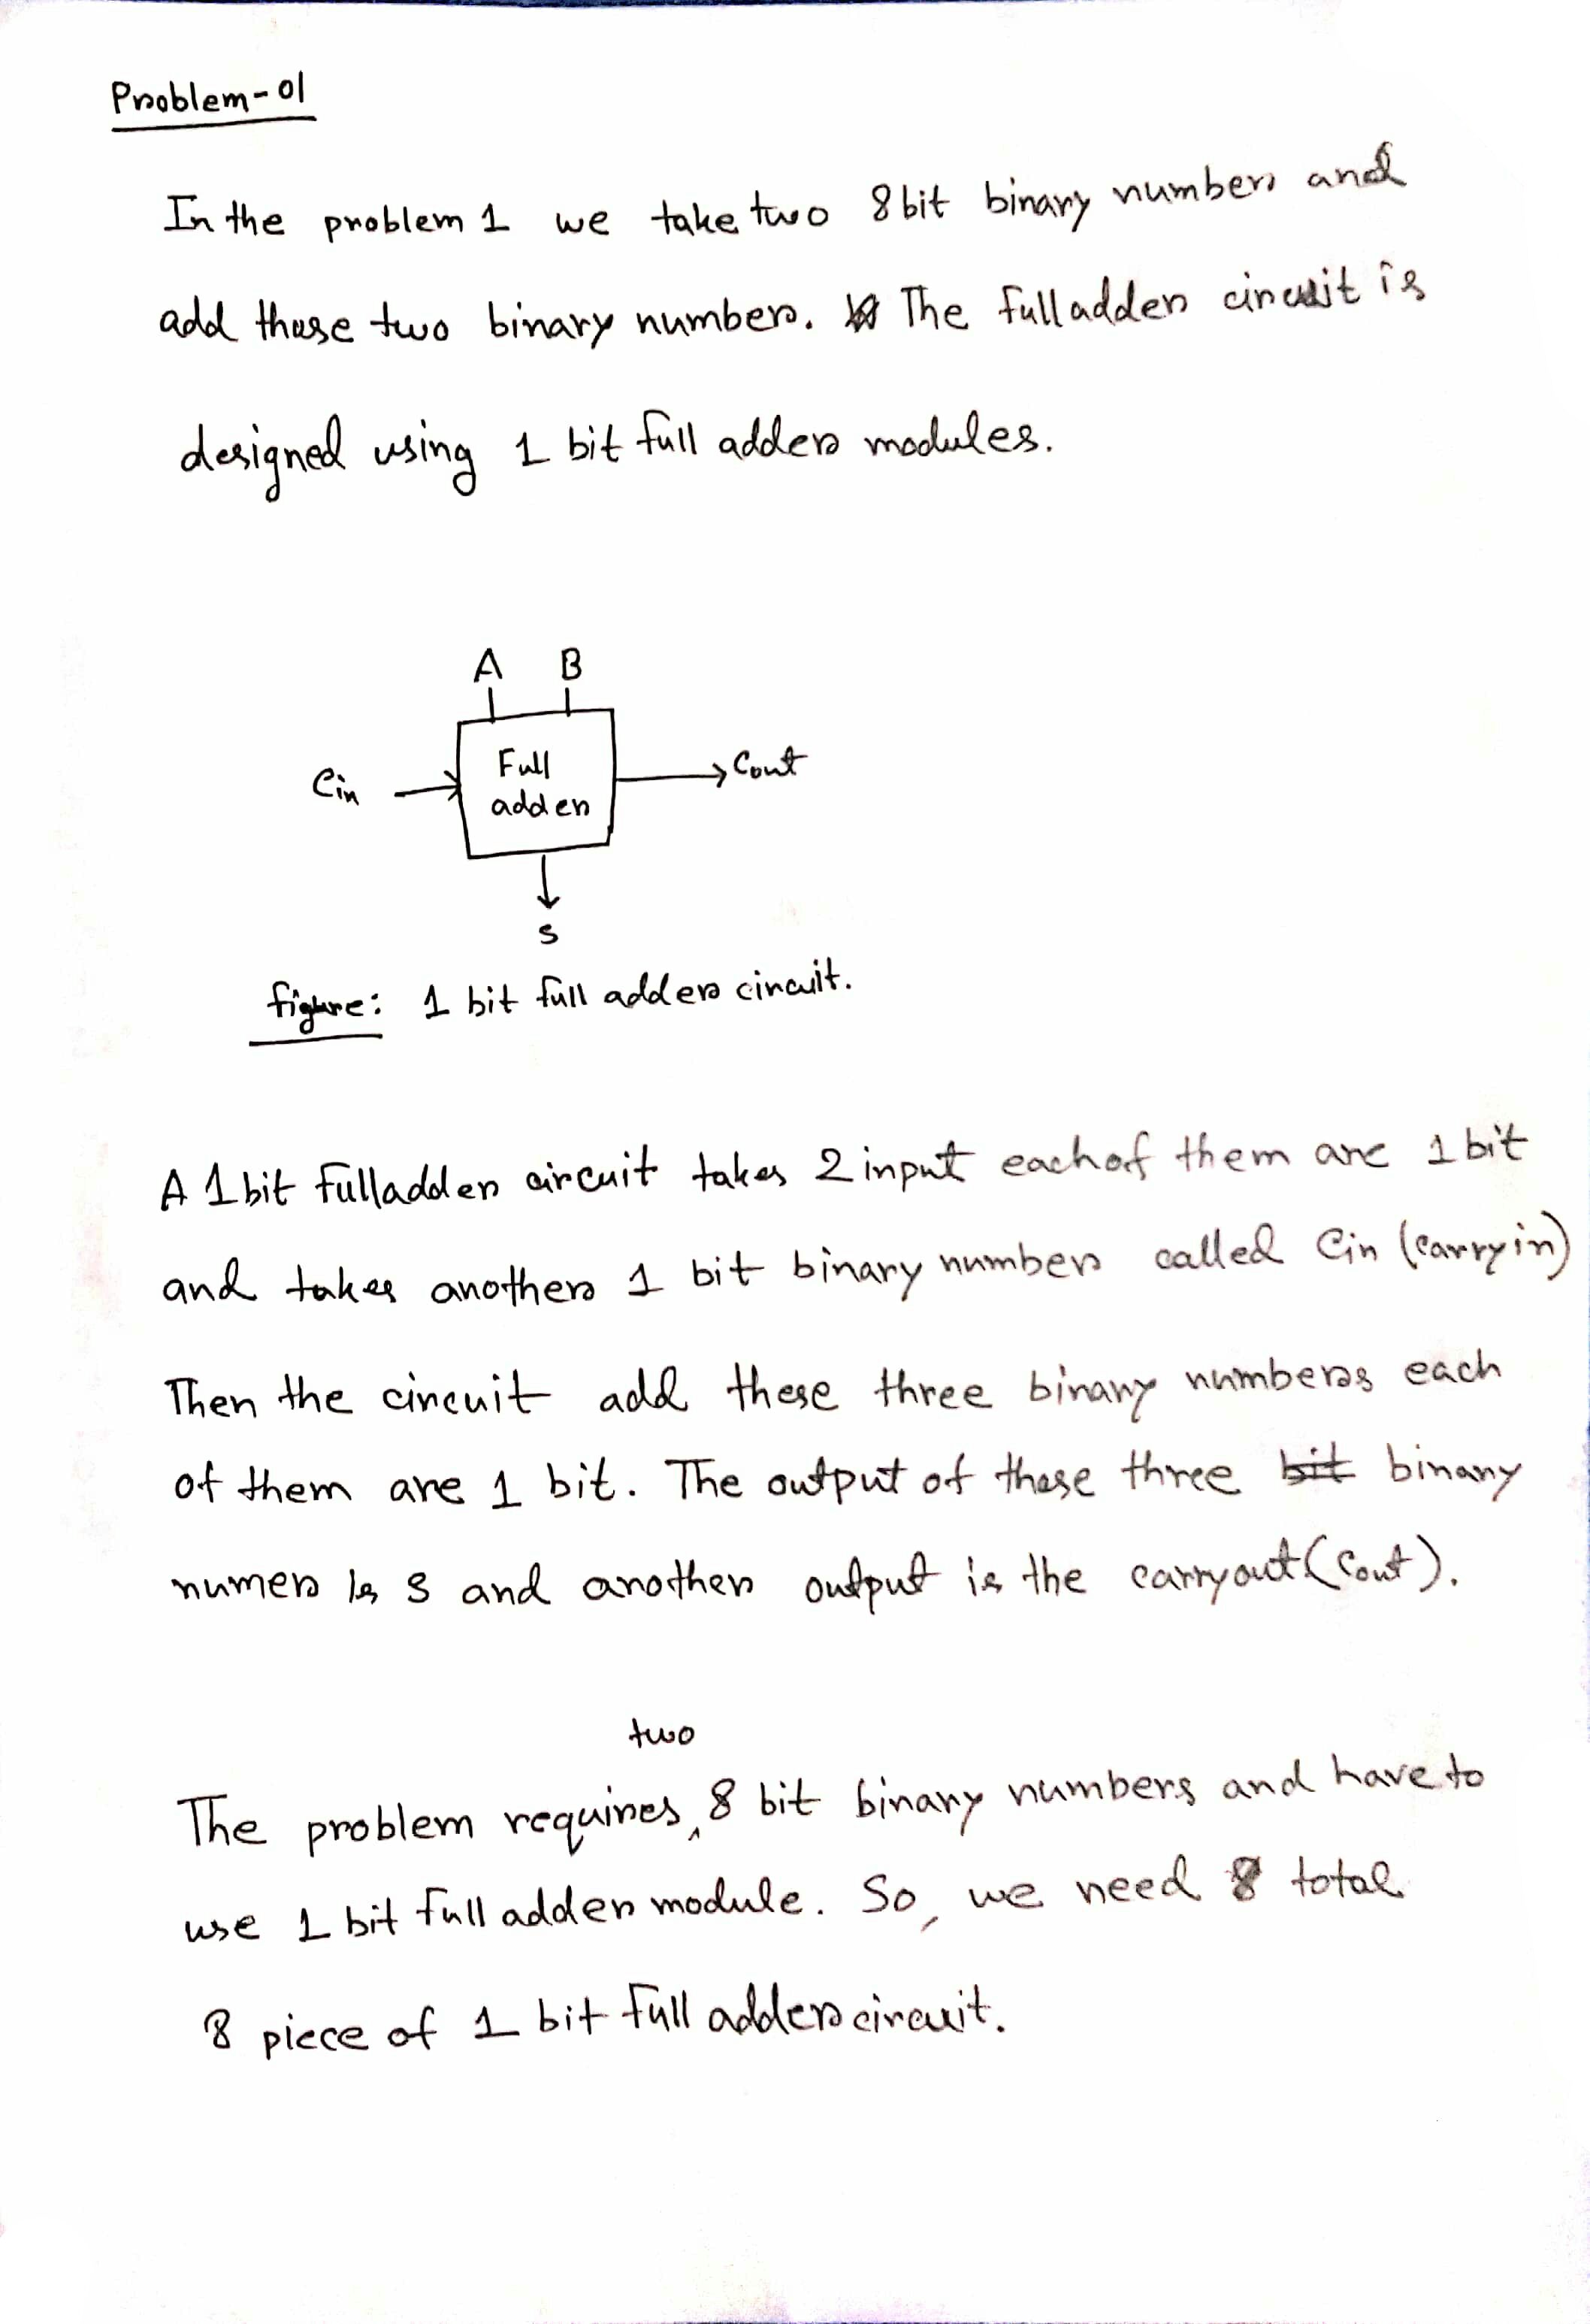 Problem-01
In the problem 1 we take two 8 bit binary number and
add these two binary number. The full adder circuit is
designed using 1 bit full adder modules.
A B
Cin
Full
adder
Cout
S
figure: 1 bit full adder circuit.
A 1 bit fulladder circuit takes 2 input each of them are 1 bit
and takes another 1 bit binary number called Cin (carry in)
Then the circuit add these three binary numbers each
of them are 1 bit. The output of these three bit binary
numer is S and another output is the carryout (Cout).
two
The problem requires, 8 bit binary numbers and have to
use 1 bit full adder module. So, we need 8 total
8 piece of 1 bit full adder circuit.